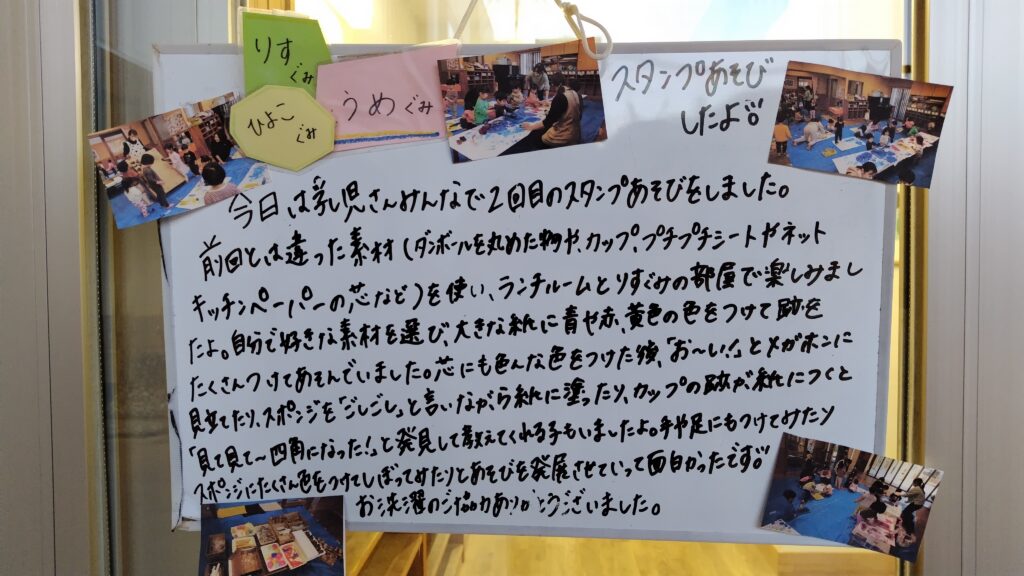 りす
ぐみ
ひよこ
ぐみ
うめぐみ
スタンプあそび
したよ
今日は乳児さんみんなで2回目のスタンプあそびをしました。
前回とは違った素材(ダンボールを丸めた物や、カップ、プチプチシートやネット
キッチンペーパーの芯など)を使い、ランチルームとりすぐみの部屋で楽しみまし
たよ。自分で好きな素材を選び、大きな紙に青や赤、黄色の色をつけて跡を
たくさんつけてあそんでいました。芯にも色んな色をつけた後、「お〜い!」とメガホンに
見立てたり、スポンジを「ごしごし」と言いながら紙に塗ったり、カップの跡が紙につくと
「見て見て〜四角になった!」と発見して教えてくれる子もいましたよ。手や足にもつけてみたり
スポンジにたくさん色をつけてしぼってみたりとあそびを発展させていって面白かったです。
お洗濯のご協力ありがとうございました。